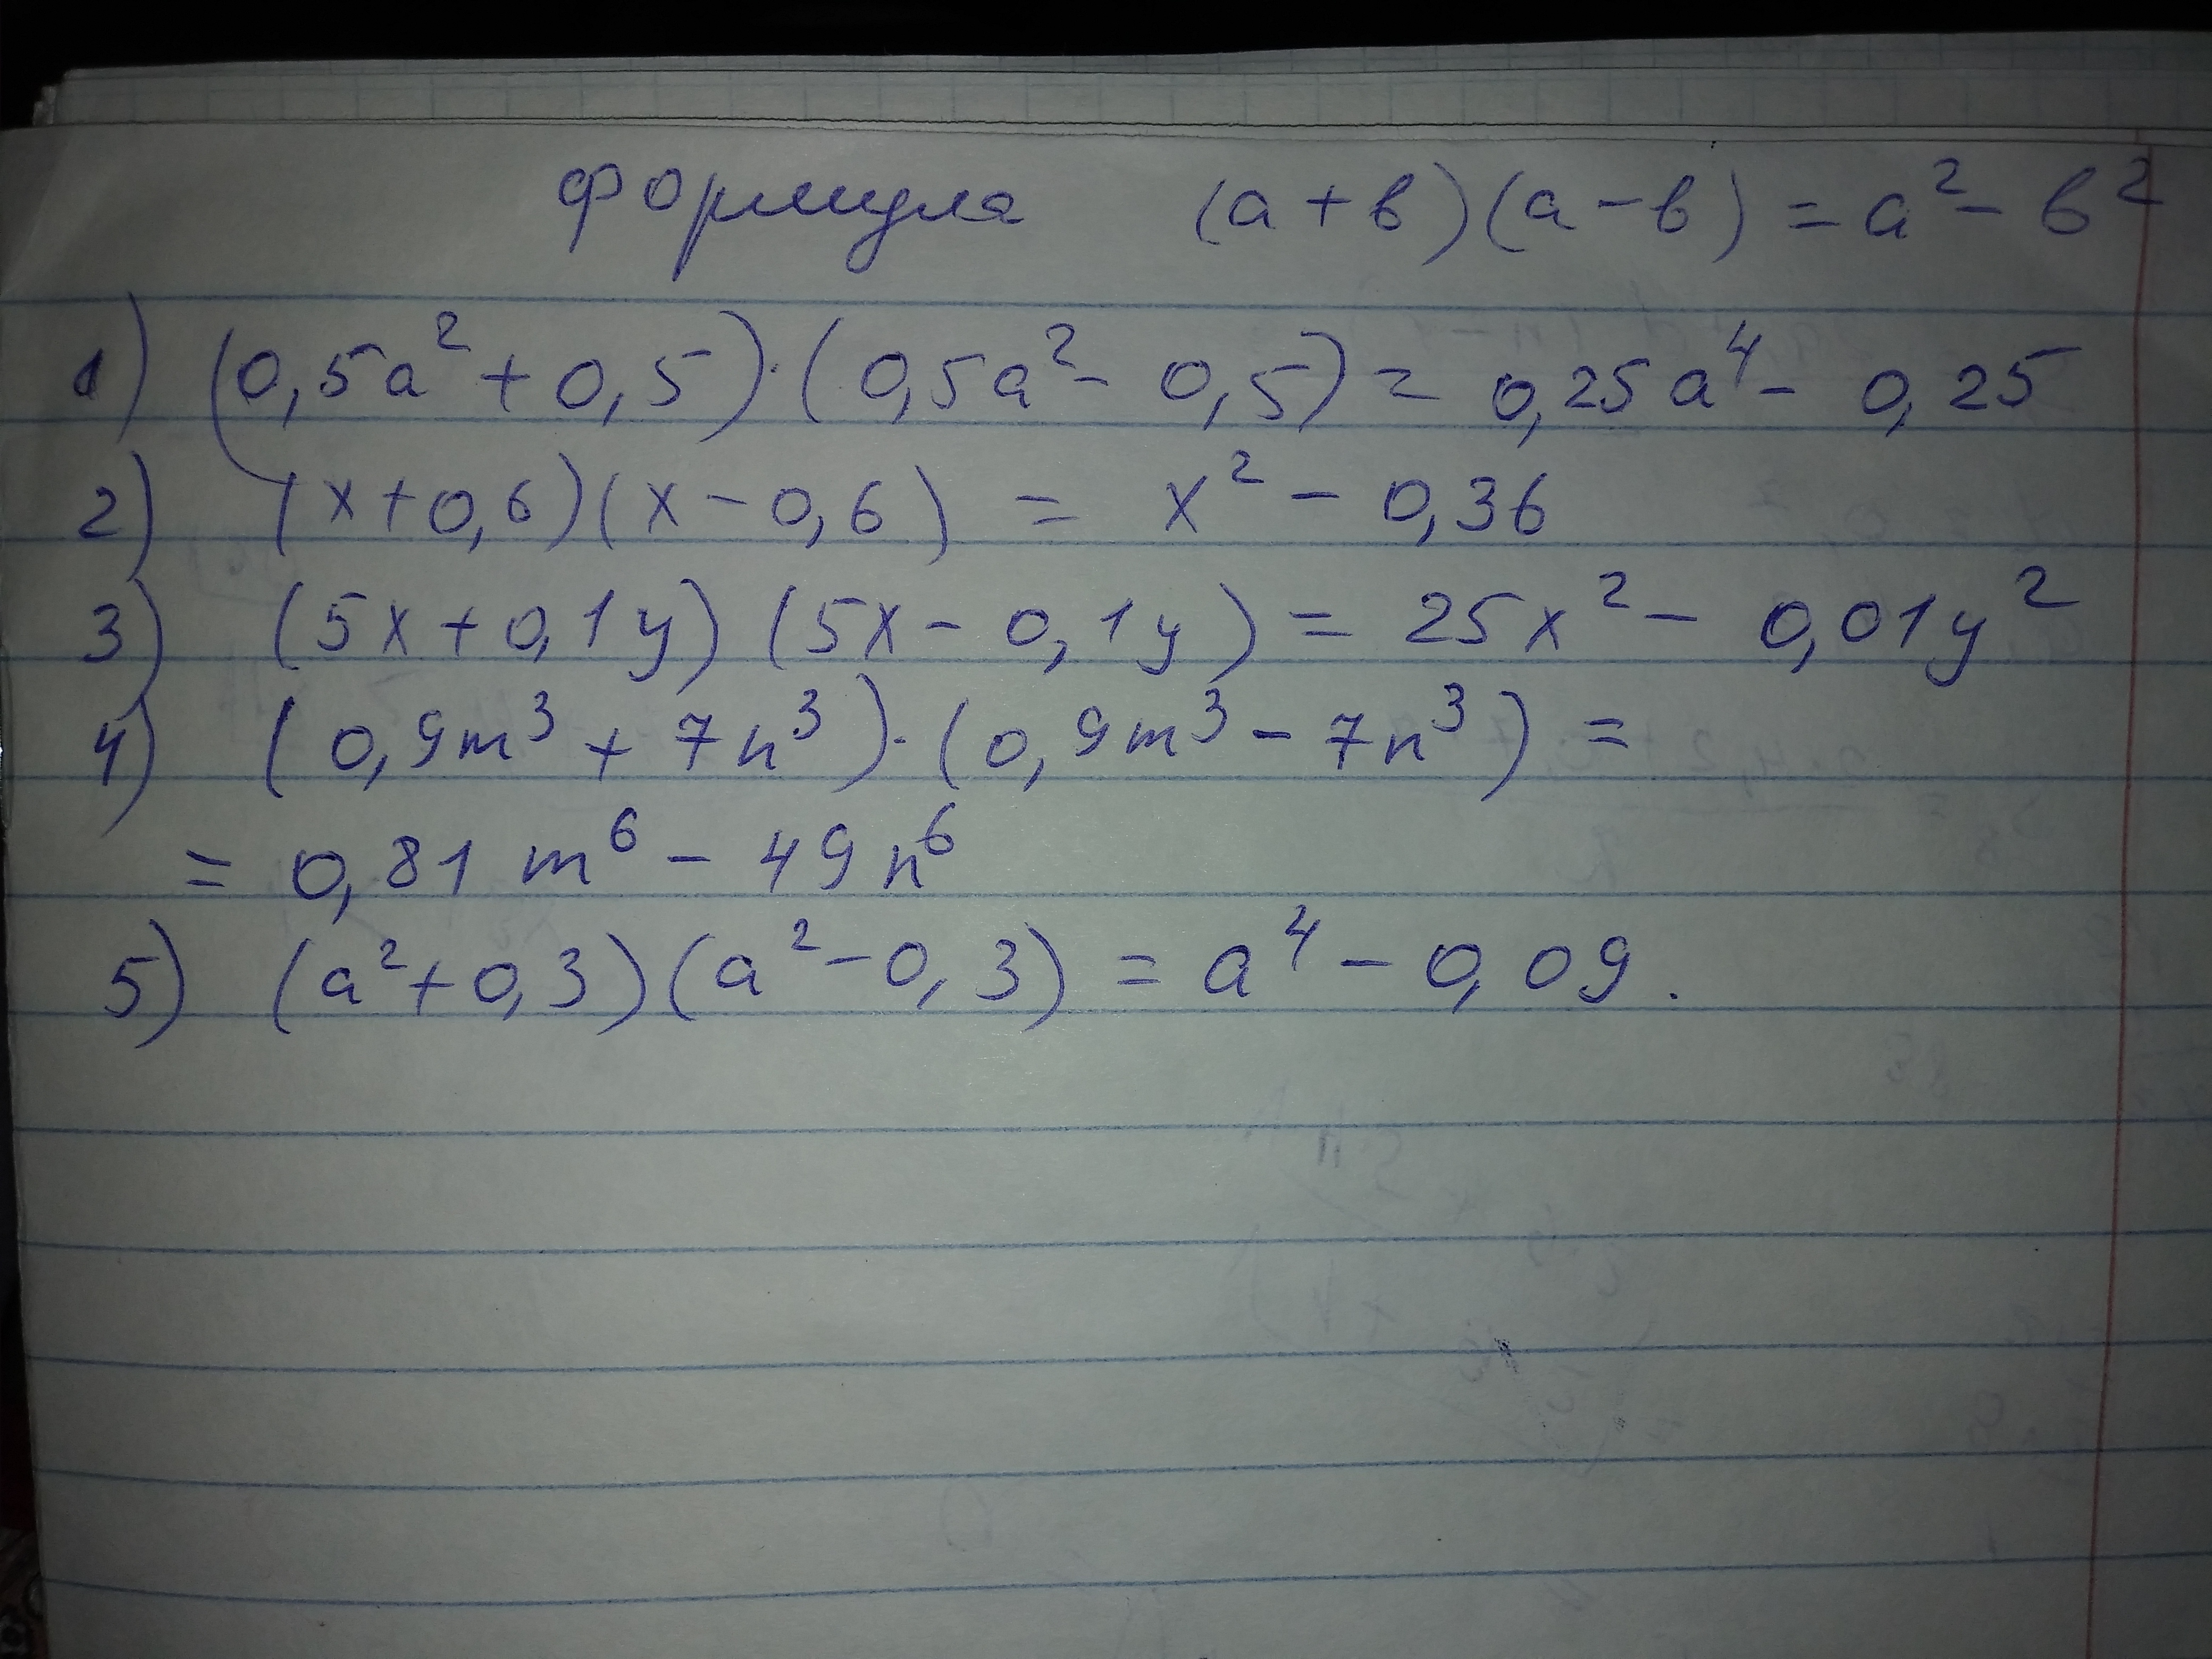 формула (a+в)(a-в)=a²-в²
1) (0,5a²+0,5)·(0,5a²-0,5)=0,25a⁴-0,25
2) (x+0,6)(x-0,6)=x²-0,36
3) (5x+0,1y)(5x-0,1y)=25x²-0,01y²
4) (0,9m³+7n³)·(0,9m³-7n³)=
=0,81m⁶-49n⁶
5) (a²+0,3)(a²-0,3)=a⁴-0,09.